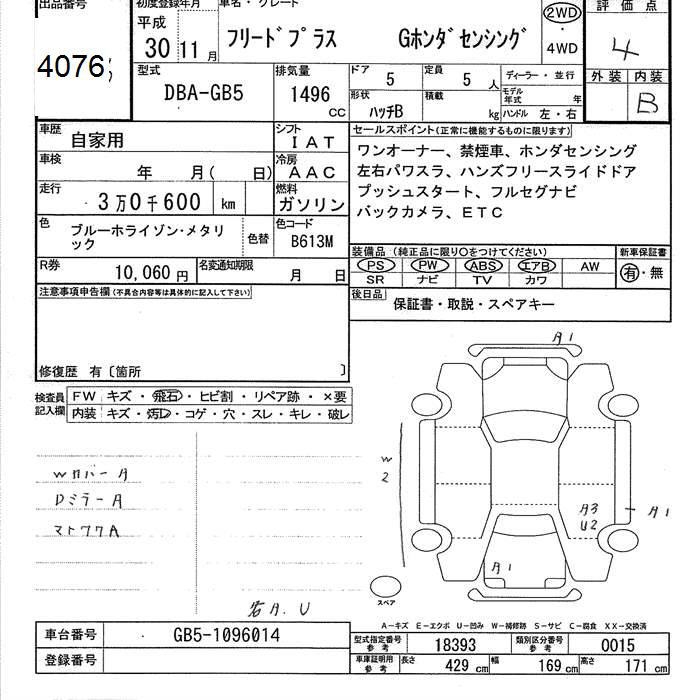 出品番号
4076
初度登録年月
平成
30 11 月
車名・グレード
フリードプラス Gホンダセンシング
2WD
・
4WD
評価点
4
外装 内装
B
型式
DBA-GB5
排気量
1496
CC
ドア
5
定員
5 人
形状
ハッチB
積載
kg
ディーラー・並行
モデル
年式 年
ハンドル 左・右
車歴
自家用
シフト
IAT
車検
年 月( 日)
冷房
AAC
走行
3万0千600 km
燃料
ガソリン
色
ブルーホライゾン・メタリ
ック
色替
色コード
B613M
R券
10,060円
名変通知期限
月 日
セールスポイント(正常に機能するものに限ります)
ワンオーナー、禁煙車、ホンダセンシング
左右パワスラ、ハンズフリースライドドア
プッシュスタート、フルセグナビ
バックカメラ、ETC
装備品(純正品に限り〇をつけてください)
PS PW ABS エアB AW
SR ナビ TV カワ
新車保証書
有・無
後日品
保証書・取説・スペアキー
注意事項申告欄(不具合内容等は具体的に記入して下さい)
修復歴 有〔箇所 〕
検査員
記入欄
FW キズ・飛石・ヒビ割・リペア跡・×要
内装 キズ・汚レ・コゲ・穴・スレ・キレ・破レ
Wカバー A
Dミラー A
A1
W
2
A3
U2
A1
A1
スペア
A-キズ E-エクボ U-凹み W-補修跡 S-サビ C-腐食 XX-交換済
車台番号
GB5-1096014
登録番号
型式指定番号
参考
18393
類別区分番号
参考
0015
車庫証明用
参考
長さ
429 cm
幅
169 cm
高さ
171 cm